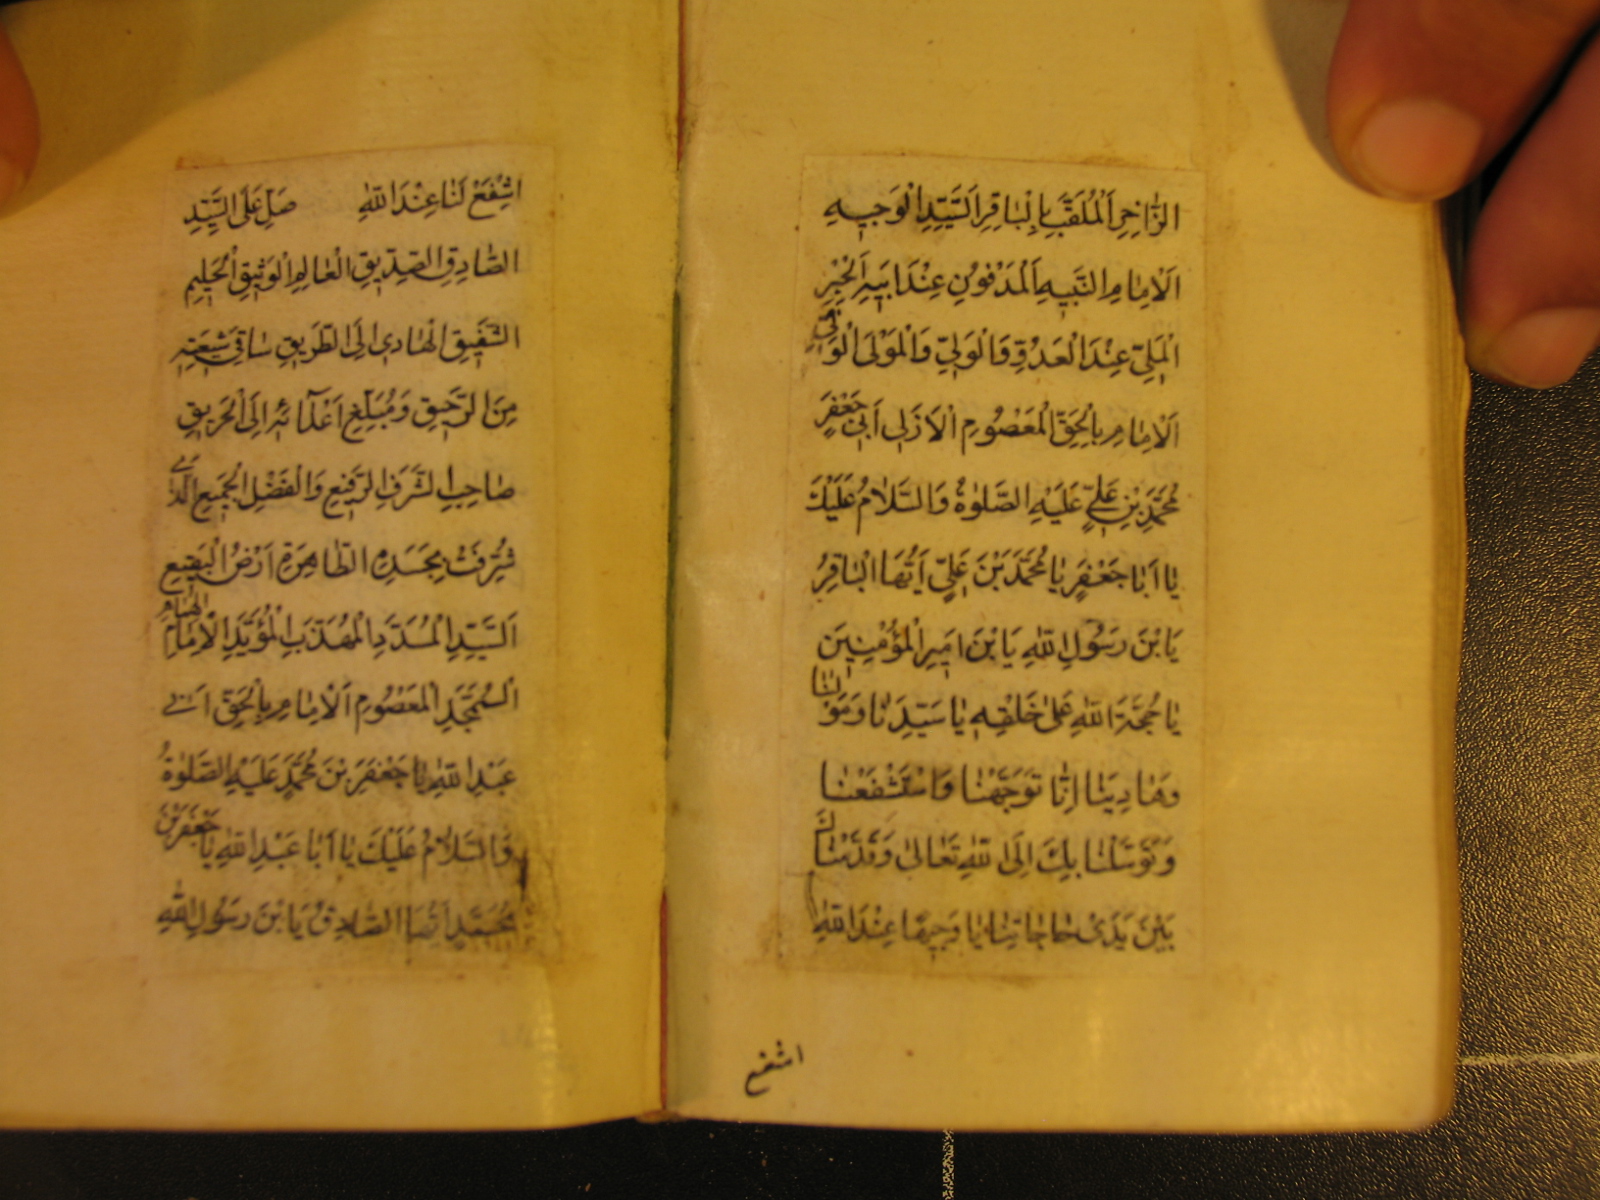 الزَّاخِرِ اَلْمُلَقَّبِ بِالْبَاقِرِ اَلسَّيِّدِ الْوَجِيهِ
اَلْاِمَامِ النَّبِيهِ اَلْمَدْفُونِ عِنْدَ اَبِيهِ اَلْحِبْرِ
الْمَلِيِّ عِنْدَ الْعَدُوِّ وَالْوَلِيِّ وَالْمَوْلَى الْوَفِيِّ
اَلْاِمَامِ بِالْحَقِّ الْمَعْصُومِ الْاَزَلِي اَبِي جَعْفَرِ
مُحَمَّدِ بْنِ عَلِيٍّ عَلَيْهِ الصَّلٰوةُ وَالسَّلَامُ عَلَيْكَ
يَا اَبَا جَعْفَرٍ يَا مُحَمَّدَ بْنَ عَلِيٍّ اَيُّهَا الْبَاقِرُ
يَابْنَ رَسُولِ اللهِ يَابْنَ اَمِيرِ الْمُؤْمِنِينَ
يَا حُجَّةَ اللهِ عَلَى خَلْقِهِ يَا سَيِّدَنَا وَمَوْلَانَا
وَهَادِيَنَا اِنَّا تَوَجَّهْنَا وَاسْتَشْفَعْنَا
وَتَوَسَّلْنَا بِكَ اِلَى اللهِ تَعَالٰى وَقَدَّمْنَاكَ
بَيْنَ يَدَىْ حَاجَاتِنَا يَا وَجِيهًا عِنْدَ اللهِ
اشفع
اشْفَعْ لَنَا عِنْدَ اللهِ صَلِّ عَلَى السَّيِّدِ
الصَّادِقِ الصِّدِّيقِ الْعَالِمِ الْوَثِيقِ الْحَلِيمِ
الشَّفِيقِ الْهَادِي اِلَى الطَّرِيقِ سَاقِي شِيعَتِهِ
مِنَ الرَّحِيقِ وَمُبَلِّغِ اَعْدَآئِهِ اِلَى الْحَرِيقِ
صَاحِبِ الشَّرَفِ الرَّفِيعِ وَالْفَضْلِ الْجَمِيعِ الَّذِي
شُرِّفَتْ بِجَسَدِهِ الطَّاهِرَةِ اَرْضُ الْبَقِيعِ
اَلسَّيِّدِ الْمُسَدَّدِ الْمُهَذَّبِ الْمُؤَيَّدِ الْاِمَامِ
الْمُمَجَّدِ الْمَعْصُومِ اَلْاِمَامِ بِالْحَقِّ اَبِي
عَبْدِ اللهِ يَا جَعْفَرَ بْنَ مُحَمَّدٍ عَلَيْهِ الصَّلٰوةُ
وَالسَّلَامُ عَلَيْكَ يَا اَبَا عَبْدِ اللهِ يَا جَعْفَرَ بْنَ
مُحَمَّدٍ اَيُّهَا الصَّادِقُ يَابْنَ رَسُولِ اللهِ